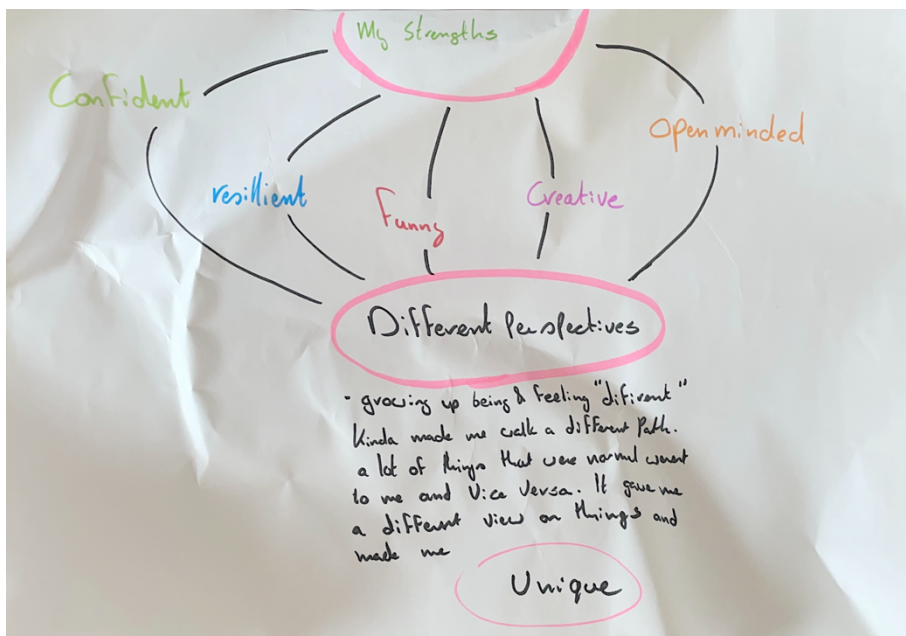 My Strengths
Confident
Openminded
resillient
Funny
Creative
Different Perspectives
- growing up being & feeling "difirent"
Kinda made me walk a different Path.
a lot of things that were normal werent
to me and Vice Versa. It gave me
a different view on things and
made me
Unique